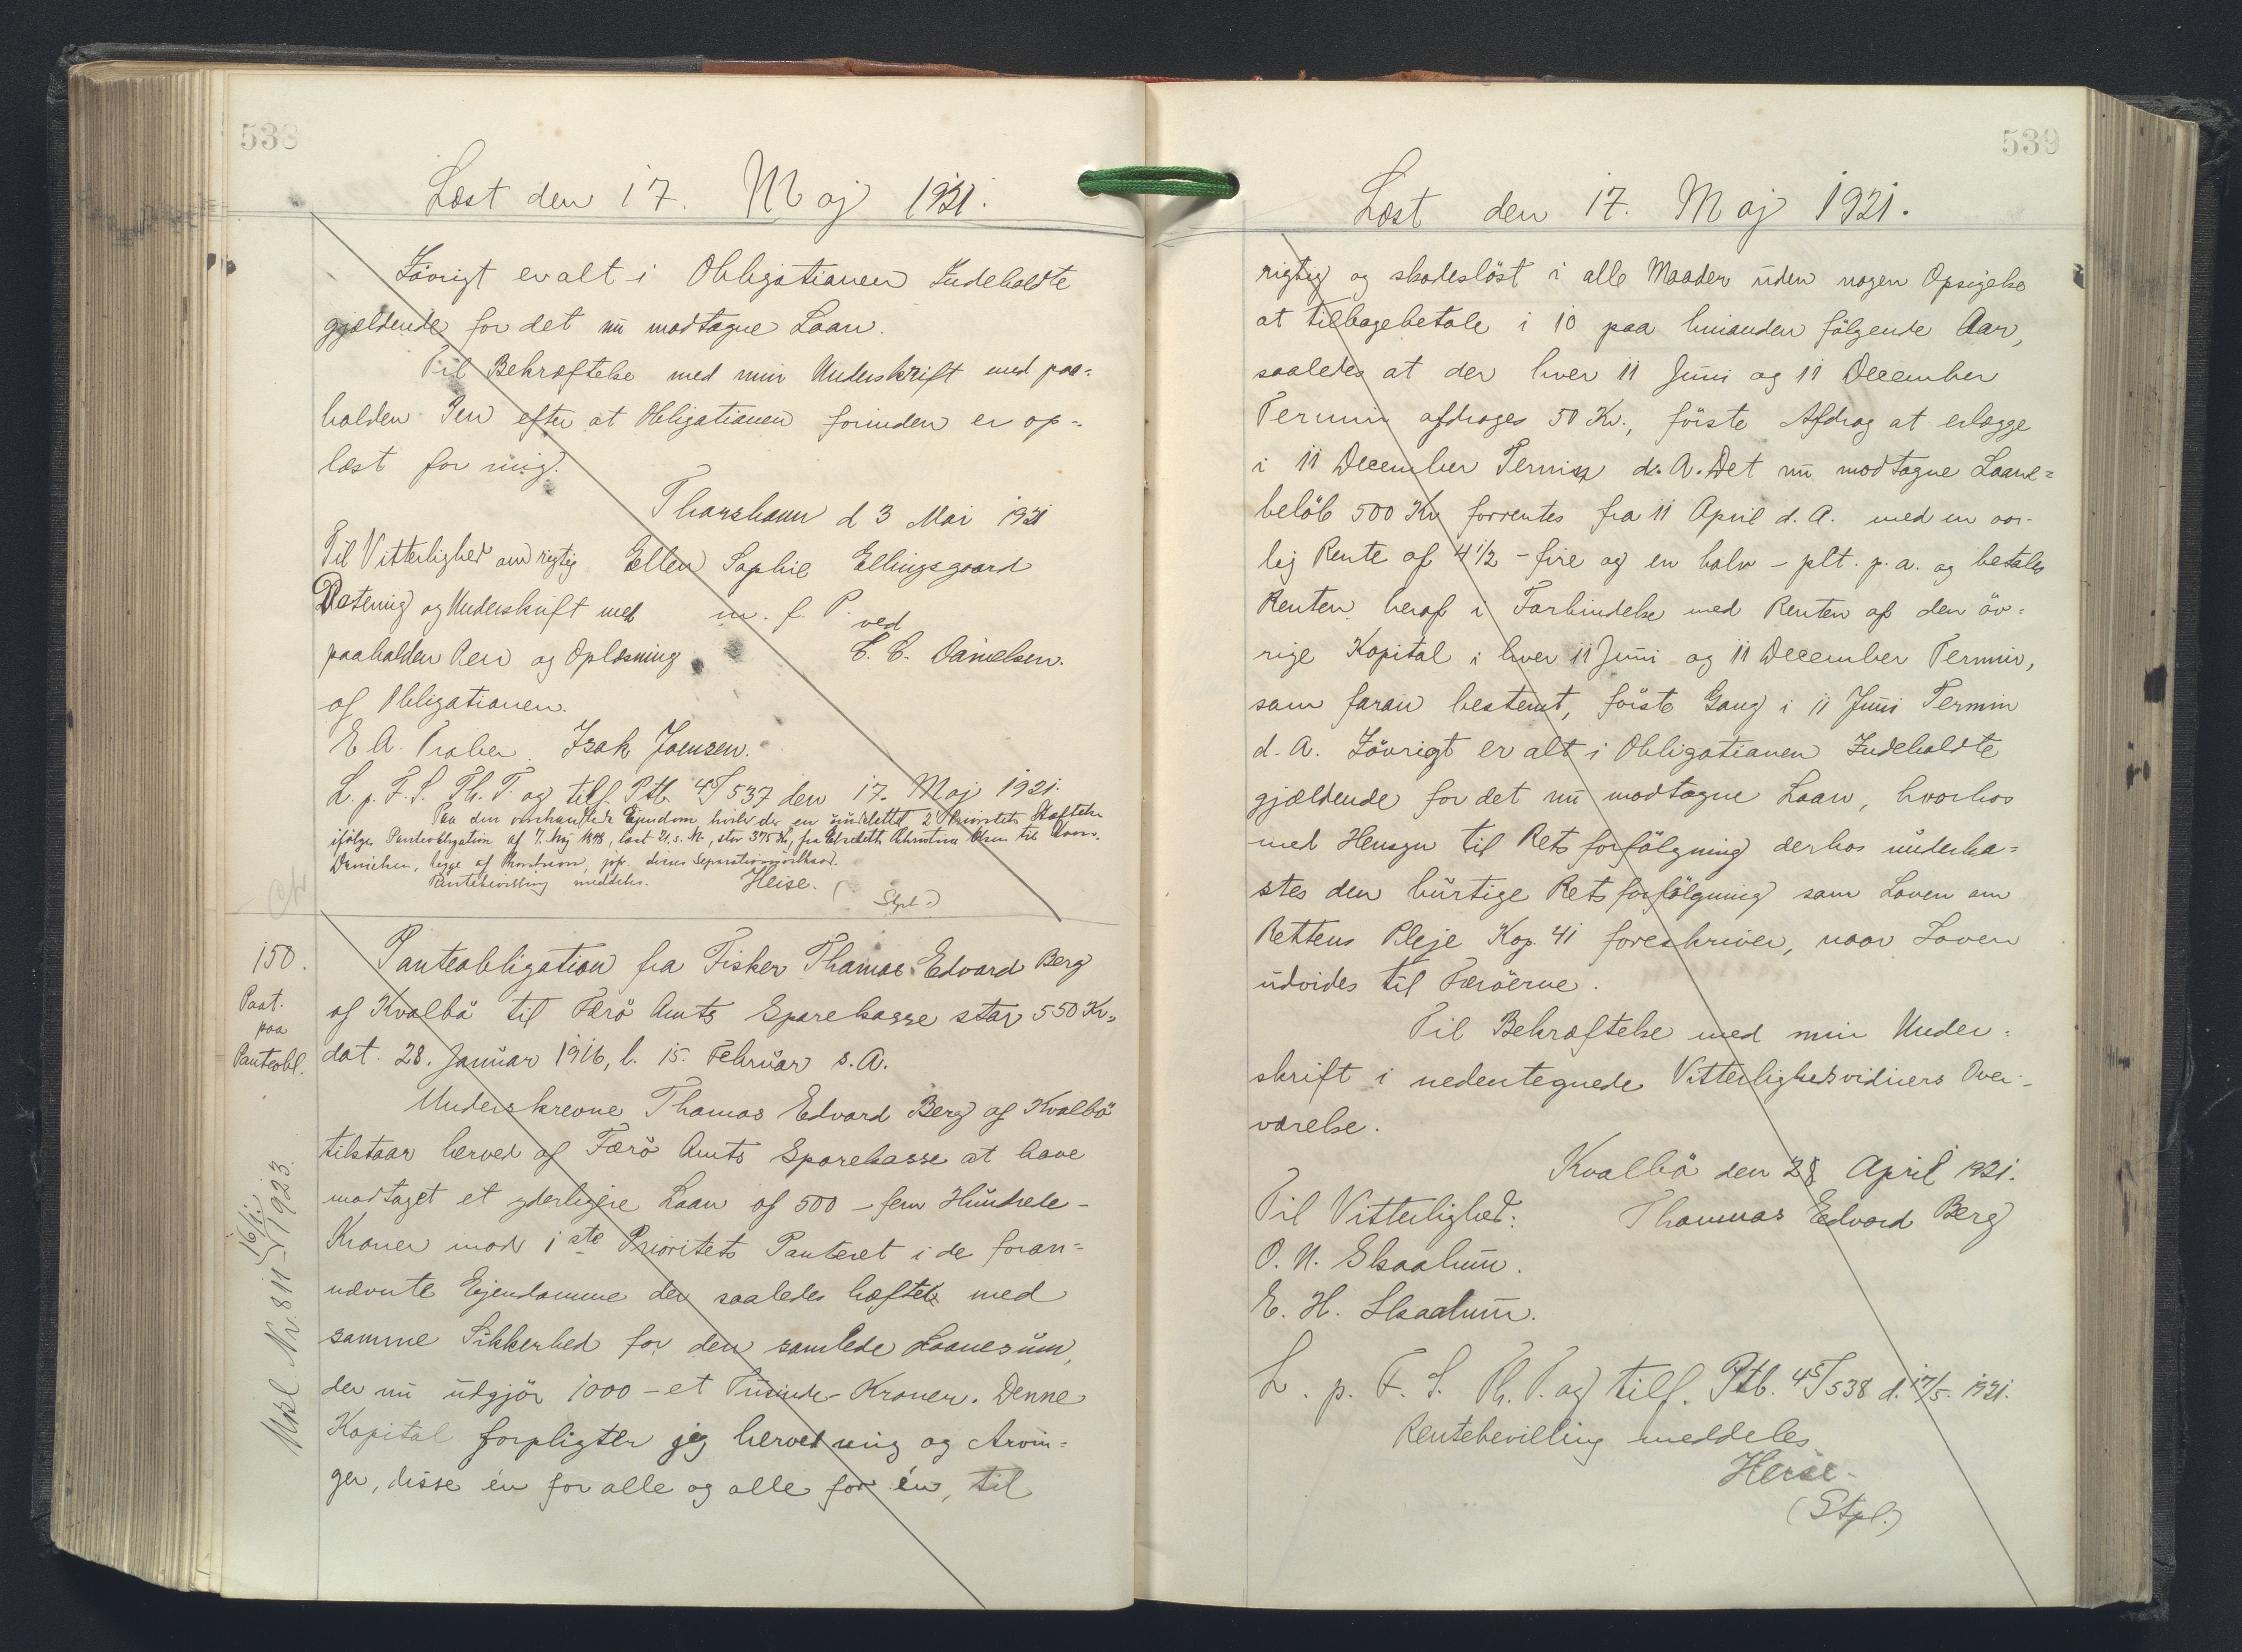 538
Læst den 17. Maj 1921.
Iøvrigt er alt i Obligationen Indeholdte
gjældende for det nu modtagne Laan.
Til Bekræftelse med min Underskrift med paa=
holden Pen efter at Obligationen forinden er op=
læst for mig.
Thorshavn d 3 Mai 1921
Til Vitterlighed om rigtig Ellen Sophie Ellingsgaard
Datering og Underskrift med m. f. P. ved
paaholden Pen og Oplæsning C. C. Danielsen.
af Obligationen.
E A. Isak Joensen.
L. p. F. S. Th. T. og tilf. Ptb. 45/537 den 17. Maj 1921.
Paa den ovenanførte Ejendom hviler der en uudslettet 2 Prioritets Hæftelse
ifølge Panteobligation af 7. Maj 1898, læst 21. s. M., stor 375 Kr, fra Christine Olsen til
Danielsen, begge af Thorshavn, jvf. disses
Rentebevilling meddeles. Heise. (Stpl.)
150.
Paat.
paa
Panteobl.
Panteobligation fra Fisker Thomas Edvard Berg
af Kvalbø til Færø Amts Sparekasse stor 550 Kr.
dat. 28. Januar 1916, l. 15. Februar s. A.
Underskrevne Thomas Edvard Berg af Kvalbø
tilstaar herved af Færø Amts Sparekasse at have
modtaget et yderligere Laan af 500 - fem Hundrede -
Kroner mod 1ste Prioritets Panteret i de foran=
nævnte Ejendomme der saaledes hæfter med
samme Sikkerhed for den samlede Laanesum,
der nu udgjør 1000 - et Tusinde - Kroner. Denne
Kapital forpligter jeg herved mig og Arvin=
ger, disse én for alle og alle for én, til
Udsl. Nr. 811 - 16/1. 1923.
539
Læst den 17. Maj 1921.
rigtig og skadesløst i alle Maader uden nogen Opsigelse
at tilbagebetale i 10 paa hinanden følgende Aar,
saaledes at der hver 11 Juni og 11 December
Termin afdrages 50 Kr., første Afdrag at erlægge
i 11 December Termin d. A. Det nu modtagne Laane=
beløb 500 Kr forrentes fra 11 April d. A. med en aar-
lig Rente af 4 1/2 - fire og en halv - pCt. p. a. og betales
Renten heraf i Forbindelse med Renten af den øv=
rige Kapital i hver 11 Juni og 11 December Termin,
som foran bestemt, første Gang i 11 Juni Termin
d. A. Iøvrigt er alt i Obligationen Indeholdte
gjældende for det nu modtagne Laan, hvorhos
med Hensyn til Rets forfølgning derhos underka=
stes den hurtige Rets forfølgning som Loven om
Rettens Pleje Kap. 41 foreskriver, naar Loven
udvides til Færøerne.
Til Bekræftelse med min Under=
skrift i nedentegnede Vitterlighedsvidners Over-
værelse.
Kvalbø den 28 April 1921.
Til Vitterlighed: Thommas Edvard Berg
O. N. Skaalum.
E. H. Skaalum.
L. p. F. S. Th. T. og tilf. Ptb. 45/538 d. 17/5. 1921.
Rentebevilling meddeles
Heise
(Stpl.)